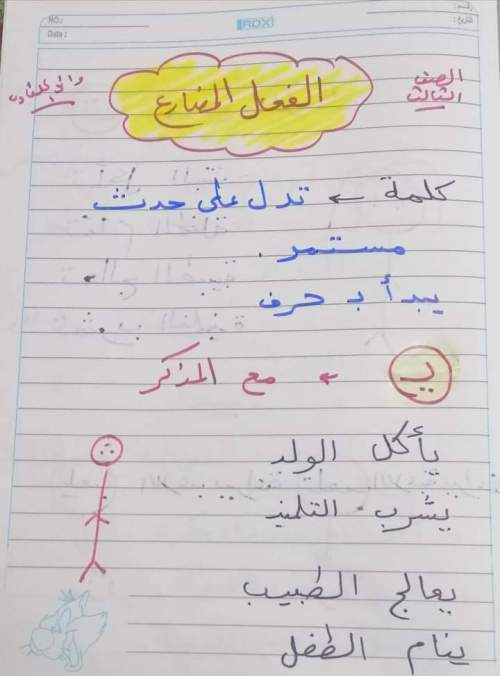 NO.:
Date :
BOX
التاريخ :
الصف
الثالث
الفعل المضارع
كلمة ← تدل على حدث
مستمر.
يبدأ بـ حرف
يـ ← مع المذكر
يأكل الولد
يشرب التلميذ
يعالج الطبيب
ينام الطفل